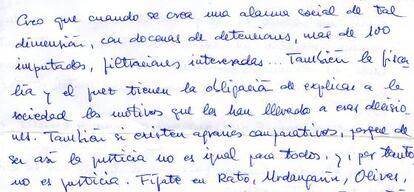 Creo que cuando se crea una alarma social de tal
dimensión, con docenas de detenciones, más de 100
imputados, filtraciones interesadas... También la fisca
lía y el juez tienen la obligación de explicar a la
sociedad los motivos que les han llevado a esas decisio
nes. También si existen agravios comparativos, porque de
ser así la justicia no es igual para todos, y, por tanto
no es justicia. Fíjate en Rato, Urdangarín, Olivas,